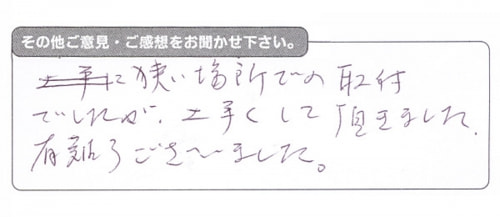 その他ご意見・ご感想をお聞かせ下さい。
上手に狭い場所での取付
でしたが、上手くして頂きました。
有難うございました。